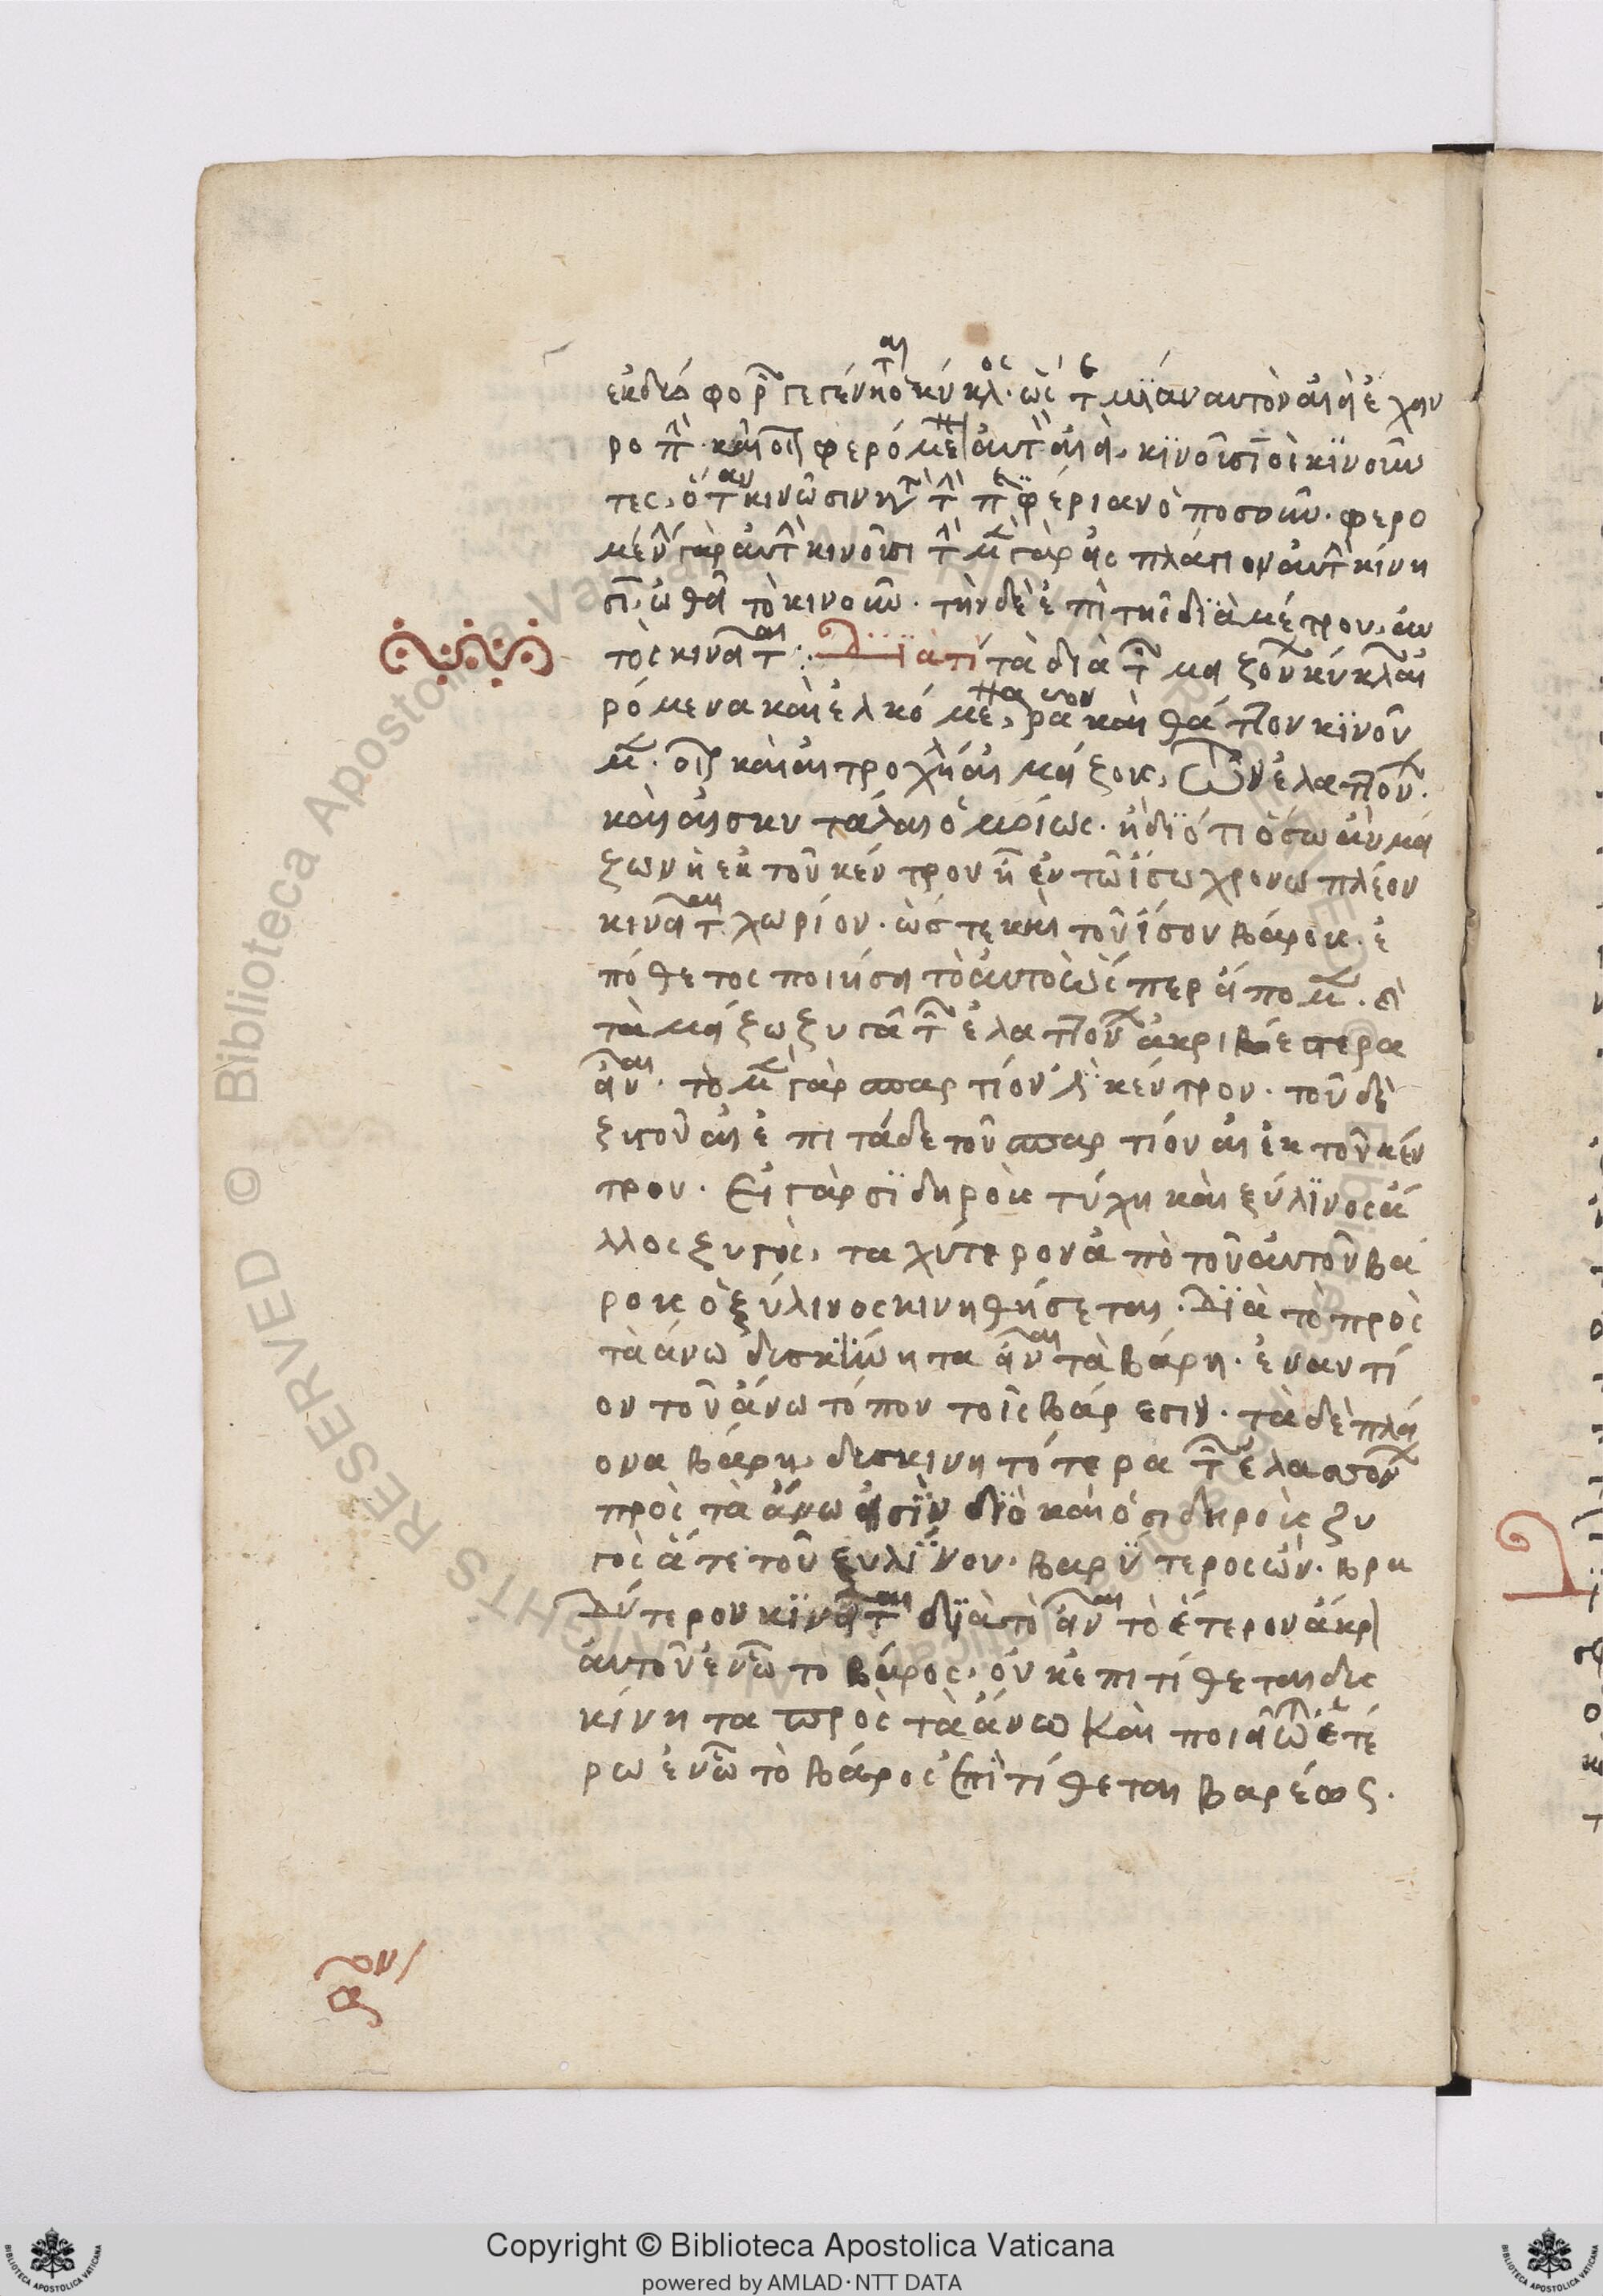 ἐκ δύο φορῶν γεγένηται ὁ κύκλος. ὥστε μίαν αὐτὸν ἀεὶ ἔχειν
ροπήν. καὶ οὕτω φερόμενον αὐτὸν ἀεὶ, κινοῦσιν οἱ κινοῦν
τες, ὅταν κινῶσιν περιφέρειαν ὁποσοῦν. φερο
μένην γὰρ αὐτὴν κινοῦσι τὴν μὲν γὰρ εἰς πλάγιον αὐτοῦ κίνη
σιν, ὠθεῖ τὸ κινοῦν. τὴν δὲ ἐπὶ τῆς διαμέτρου, αὐ
τὸς κινεῖται: Διὰ τί τὰ διὰ τῶν μειζόνων κύκλων αἰ
ρόμενα καὶ ἑλκόμενα, ρᾶον καὶ θᾶττον κινοῦ
μεν. οἷον καὶ αἱ τροχιλέαι αἱ μείζους, τῶν ἐλαττόνων.
καὶ αἱ σκυτάλαι ὁμοίως. ἢ διότι ὅσω ἂν μεί
ζων ἡ ἐκ τοῦ κέντρου ᾖ ἐν τῶ ἴσω χρόνω πλέον
κινεῖται χωρίον. ὥστε καὶ τοῦ ἴσου βάρους. ἐ
πόθετος ποιήσει τὸ αὐτὸ ὥσπερ εἴπομεν. ὅτι
τὰ μείζω ζυγὰ τῶν ἐλαττόνων ἀκριβέστερα
εἶναι. τὸ μὲν γὰρ σπαρτίον ἐστὶ κέντρον. τοῦ δὲ
ζυγοῦ αἱ ἐπὶ τάδε τοῦ σπαρτίου αἱ ἐκ τοῦ κέν
τρου. Εἰ γὰρ σιδηροῦς τύχη καὶ ξύλινος ἄ
λλος ζυγὸς, ταχύτερον ἀπὸ τοῦ αὐτοῦ βά
ρους ὁ ξύλινος κινηθήσεται. Διὰ τὸ πρὸς
τὰ ἄνω δυσκίνητα εἶναι τὰ βάρη. ἐναντί
ον τοῦ ἄνω τόπου τοῖς βάρεσιν. τὰ δὲ πλεί
ονα βάρη, δυσκινητότερα τῶν ἐλασσόνων
πρὸς τὰ ἄνω εἰσὶν διὸ καὶ ὁ σιδηροῦς ζυ
γὸς ἅτε τοῦ ξυλίνου. βαρύτερος ὢν. βρα
δύτερον κινεῖται διὰ τὸ εἶναι τὸ ἕτερον ἄκρον
αὐτοῦ ἐν ὧ τὸ βάρος, οὐκ ἐπιτίθεται δυς
κίνητα πρὸς τὰ ἄνω καὶ ποιεῖ τῶ ἑτέ
ρω ἐν ὧ τὸ βάρος ἐπιτίθεται βαρέως.
RESERVED © Biblioteca Apostolica Vaticana
Copyright © Biblioteca Apostolica Vaticana
powered by AMLAD·NTT DATA